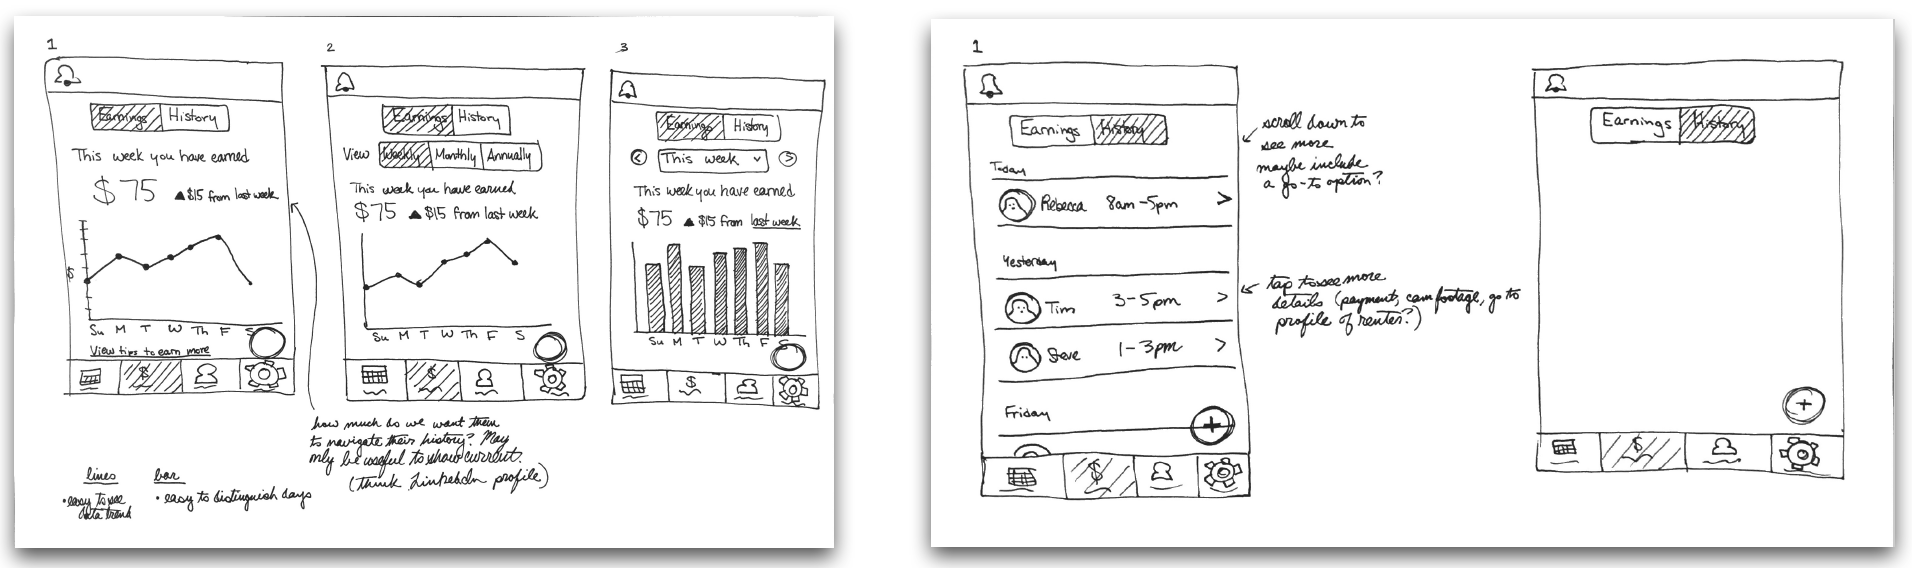 1
Earnings History
This week you have earned
$75 ▲$15 from last week
$
Su M T W Th F S
View tips to earn more
$
2
Earnings History
View Weekly Monthly Annually
This week you have earned
$75 ▲ $15 from last week
Su M T W Th F S
$
3
Earnings History
< This week >
This week you have earned
$75 ▲ $15 from last week
Su M T W Th F S
$
how much do we want them
to navigate their history? May
only be useful to show current.
(think LinkedIn profile)
lines
• easy to see
data trend
bar
• easy to distinguish days
1
Earnings History
Today
Rebecca 8am-5pm >
Yesterday
Tim 3-5pm >
Steve 1-3pm >
Friday
+
$
scroll down to
see more
maybe include
a go-to option?
tap to see more
details (payment, cam footage, go to
profile of renter?)
Earnings History
+
$